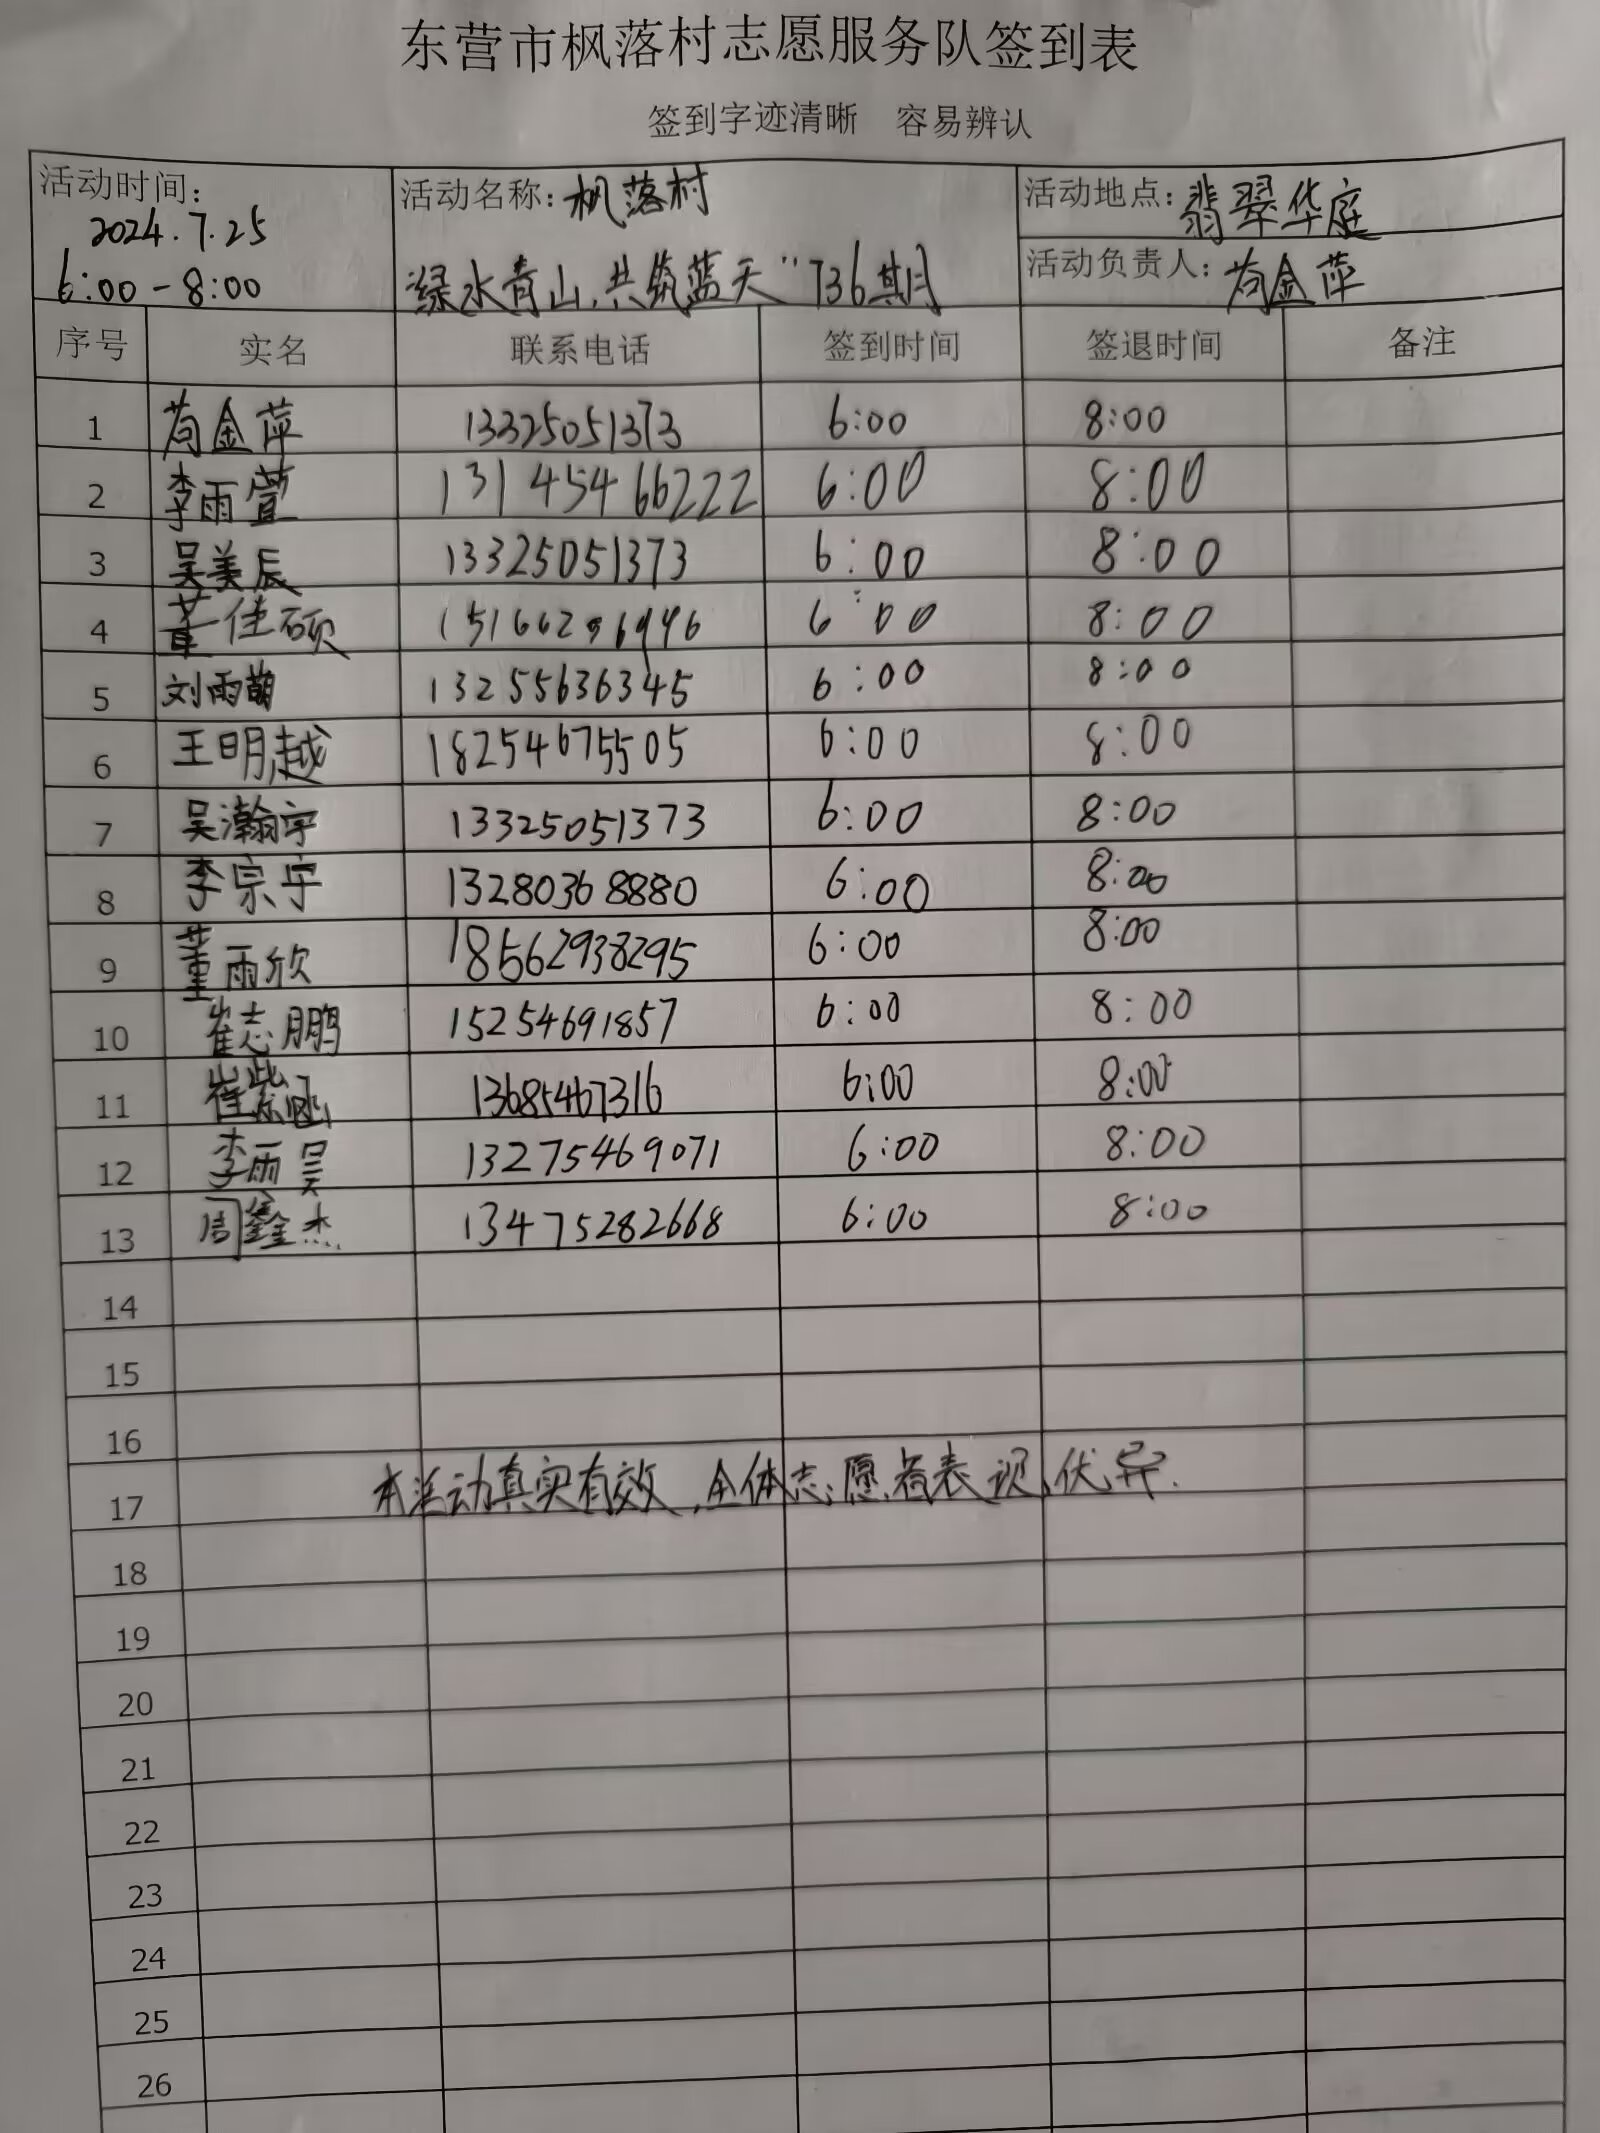 东营市枫落村志愿服务队签到表
签到字迹清晰 容易辨认
活动时间: 2024.7.25 6:00-8:00
活动名称: 枫落村 "绿水青山,共筑蓝天"736期
活动地点: 翡翠华庭
活动负责人: 苟金萍
序号 实名 联系电话 签到时间 签退时间 备注
1 苟金萍 13325051373 6:00 8:00
2 李雨萱 13145466222 6:00 8:00
3 吴美辰 13325051373 6:00 8:00
4 董佳硕 6:00 8:00
5 刘雨萌 13255636345 6:00 8:00
6 王明越 18254675505 6:00 8:00
7 吴瀚宇 13325051373 6:00 8:00
8 李宗宇 13280368880 6:00 8:00
9 董雨欣 18562938295 6:00 8:00
10 崔志鹏 15254691857 6:00 8:00
11 崔紫涵 13685467316 6:00 8:00
12 李雨昊 13275469071 6:00 8:00
13 周鑫杰 13475282668 6:00 8:00
14
15
16
17 本活动真实有效,全体志愿者表现优异.
18
19
20
21
22
23
24
25
26